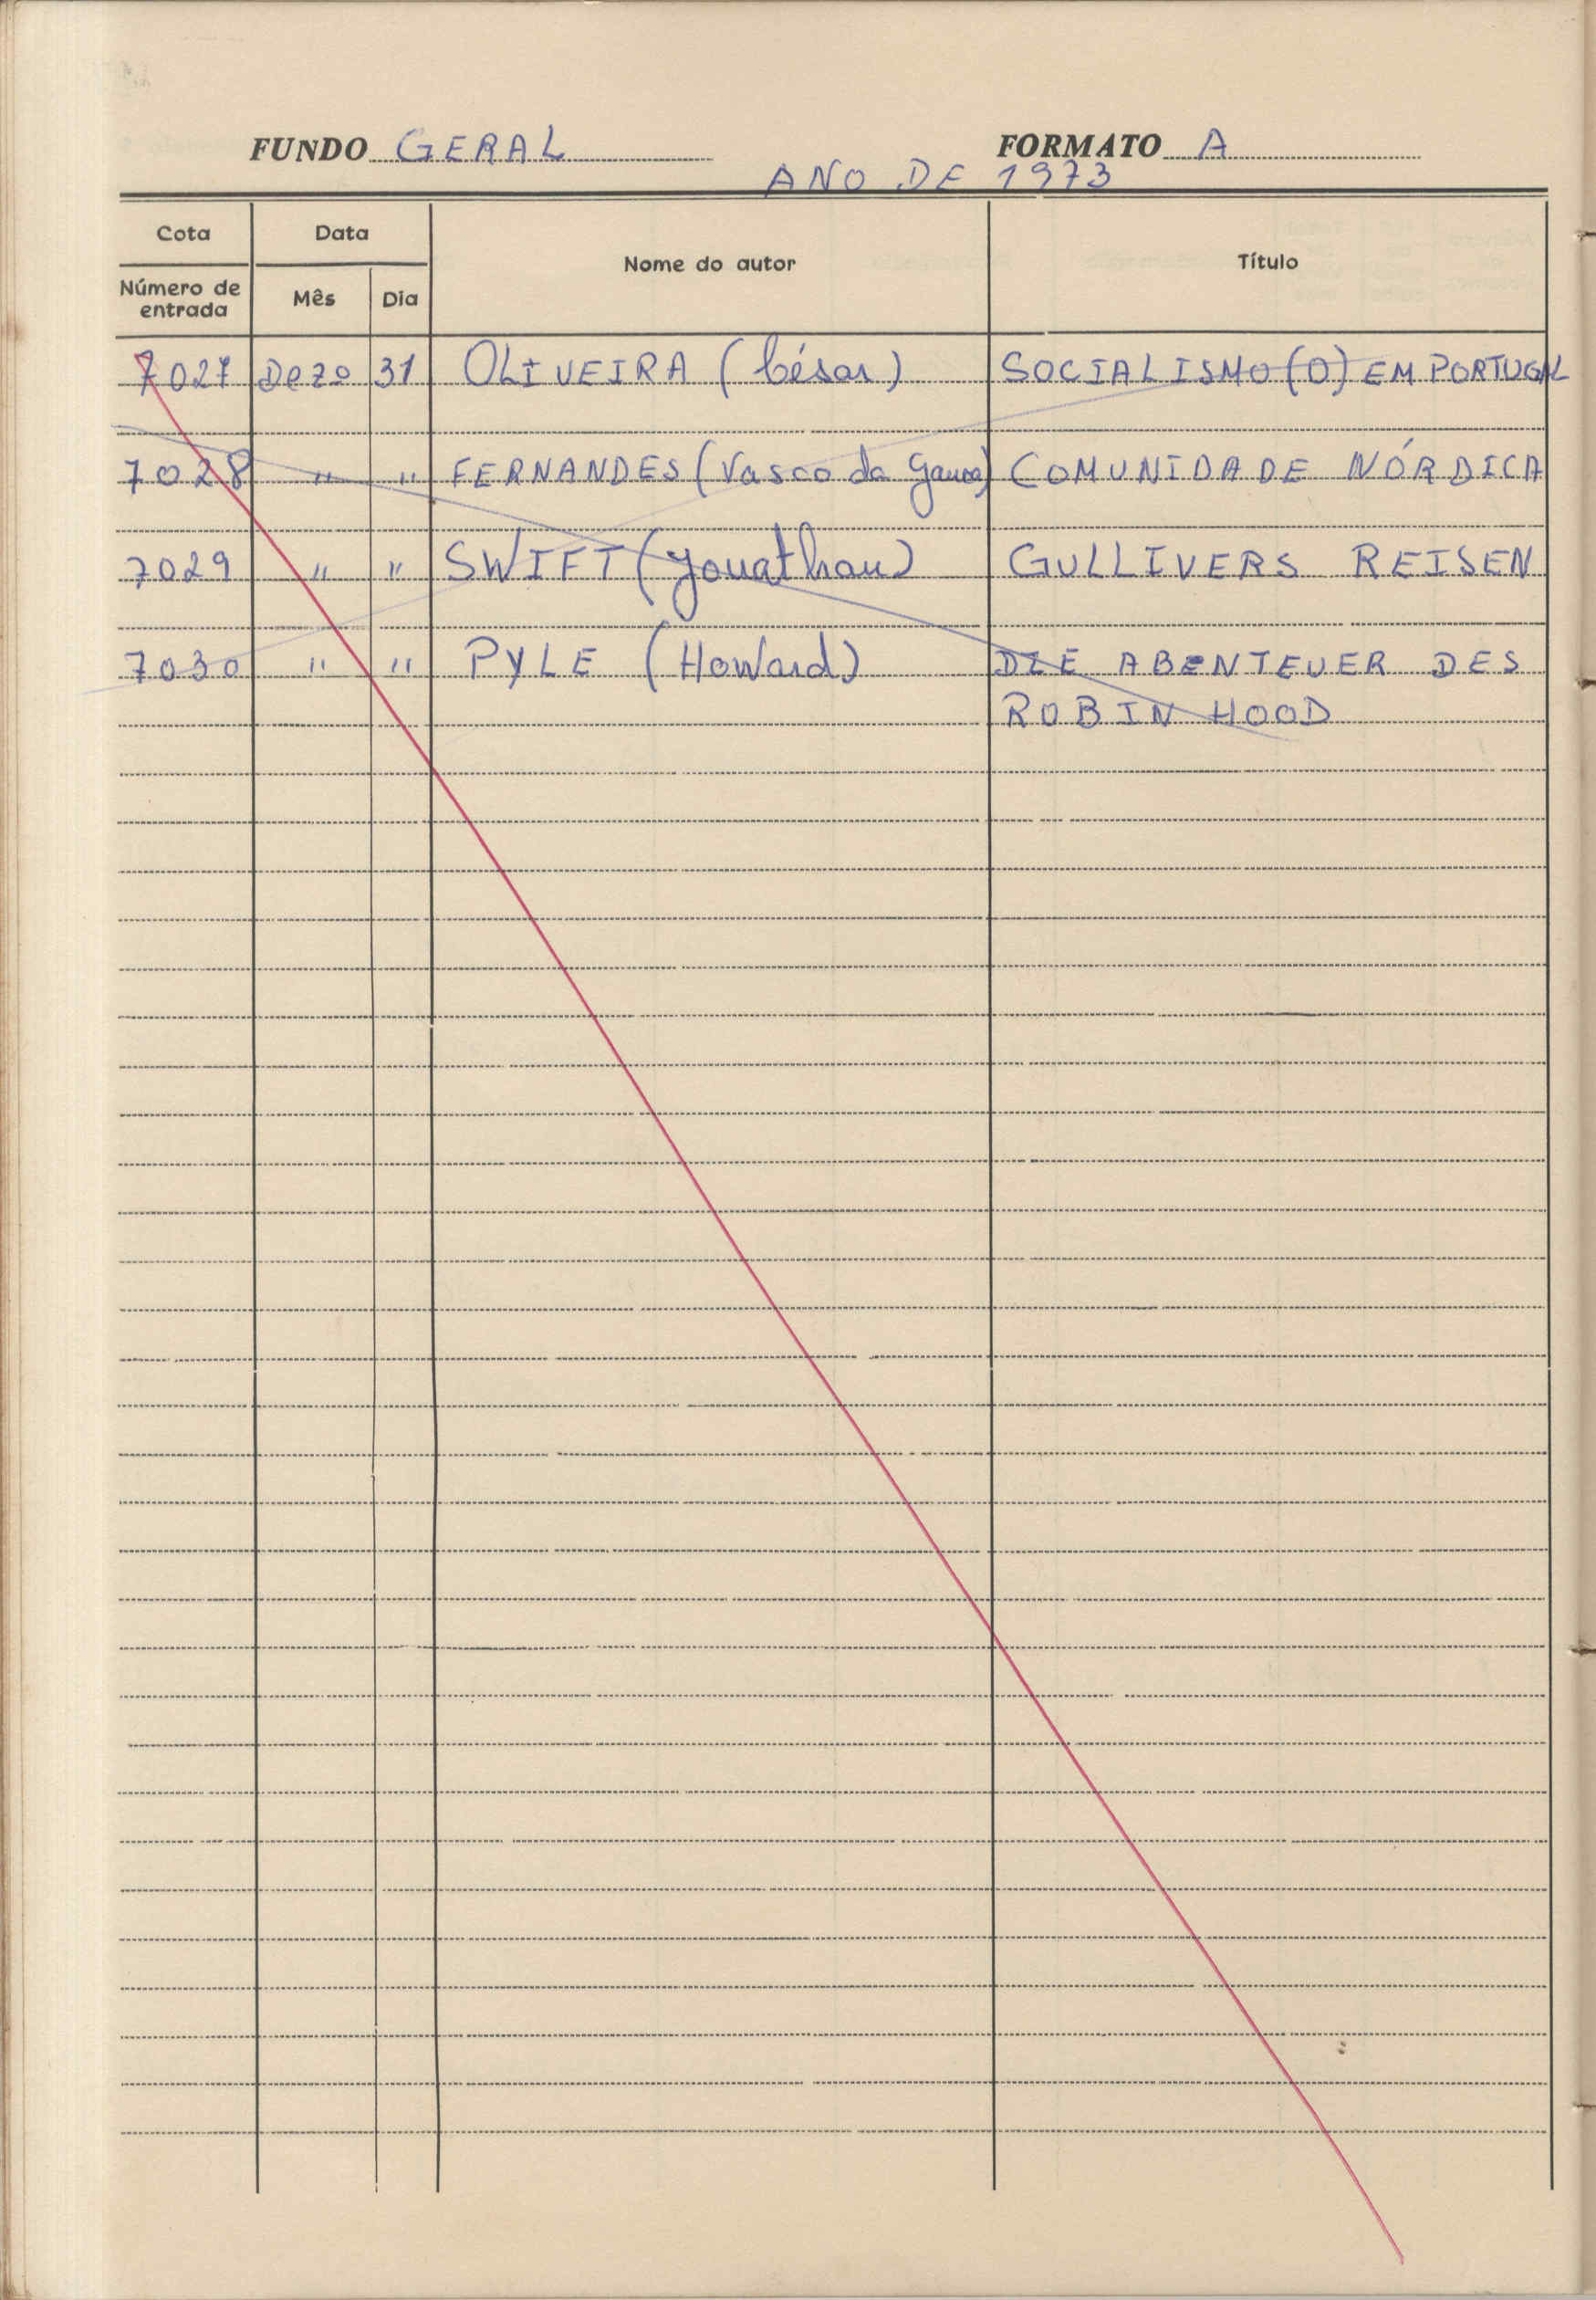 FUNDO GERAL FORMATO A
ANO DE 1973
Cota Data Nome do autor Título
Número de entrada Mês Dia
7027 Dezo 31 OLIVEIRA (César) SOCIALISMO (O) EM PORTUGAL
7028 " " FERNANDES (Vasco da Gama) COMUNIDADE NÓRDICA
7029 " " SWIFT (Jonathan) GULLIVERS REISEN
7030 " " PYLE (Howard) DIE ABENTEUER DES
ROBIN HOOD